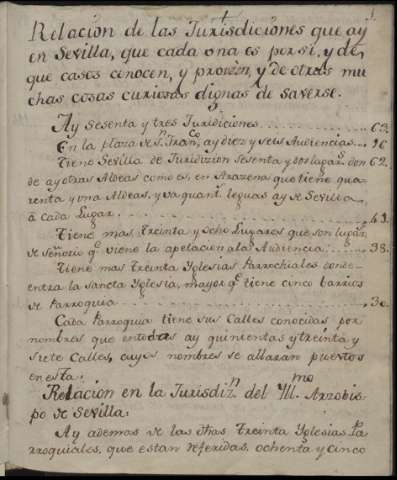 Relacion de las Jurisdiciones que aÿ
en Sevilla, que cada una es per si, y de
que casos conocen, y proveen, y de otras mu
chas cosas curiosas dignas de saverse.
Ay Sesenta y tres Juridiciones 63.
En la plaza de Sn. Franco. ay diez y seis Audiencias 16
Tiene Sevilla de Juridizion Sesenta y dos lugars. don 62.
de ay otras Aldeas como es, en Arazena que tiene qua
renta y una Aldeas, y va quants. leguas ay de Sevilla
à cada Lugar 41.
Tiene mas Treinta y Ocho Lugares que son lugars.
de señorio qe. viene la apelacion a la Audiencia 38.
Tiene mas Treinta Yglesias Parrochiales conde-
entra la Sancta Yglesia, mayor qe. tiene cinco barrios
de Parroquia 30.
Cada Parroquia tiene sus Calles conocidas por
nombres que en todas ay quinientas y treinta y
Siete Calles, cuyos nombres se allaran puestos
en esta.
Relacion en la Jurisdizn. del Yllmo. Arzobis
po de Sevilla.
Ay ademas de las dhas Treinta Yglesias Pa
rroquiales, que estan referidas, ochenta y cinco